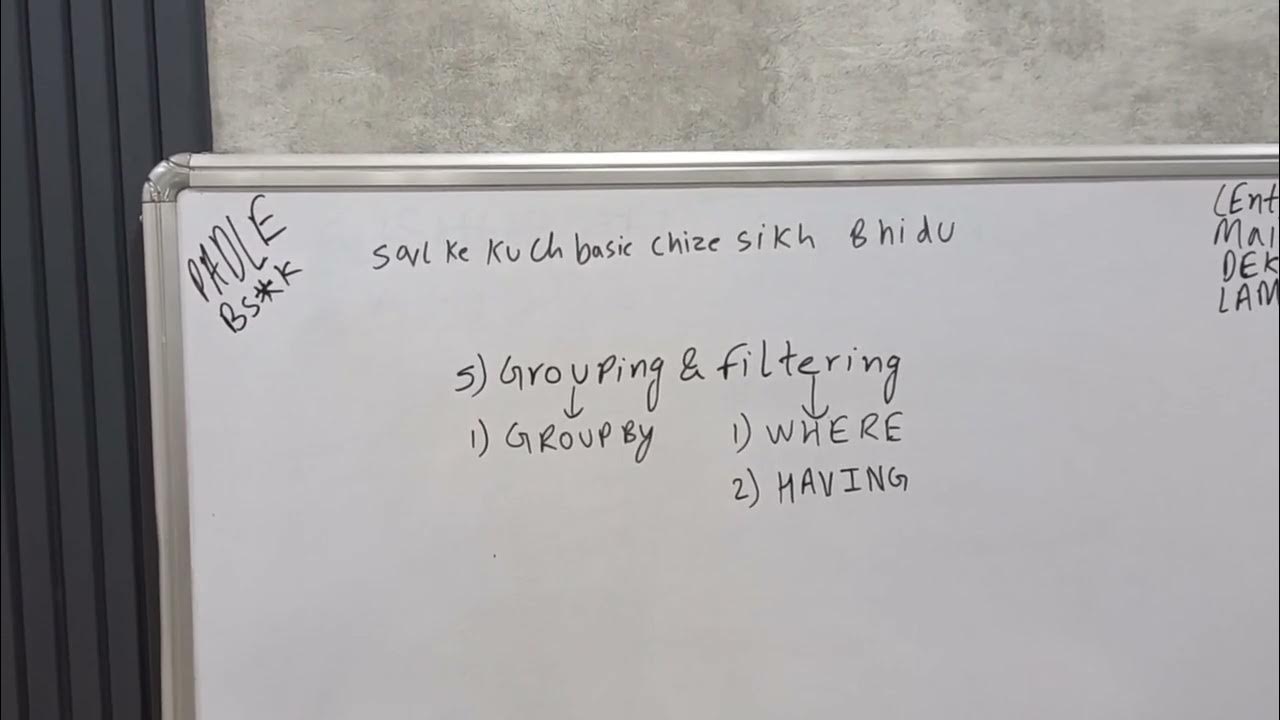 PADLE
BS*K
SQL Ke KuCh basic Chize sikh Bhidu
5) Grouping & filtering
1) GROUP BY
1) WHERE
2) HAVING
(Ent
Mai
DEK
LAM